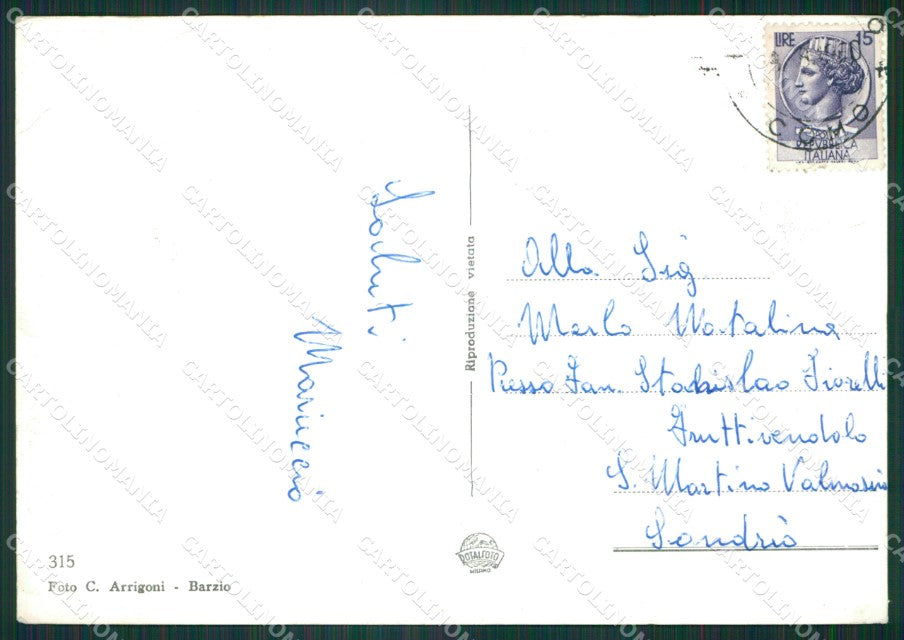 Saluti
Mariuccia
315
Foto C. Arrigoni - Barzio
Riproduzione vietata
ROTALFOTO
MILANO
LIRE 15
REPVBBLICA
ITALIANA
COMO
Alla Sig
Merlo Natalina
Presso Fam. Stanislao Fiorelli
Fruttivendolo
S. Martino Valmasino
Sondrio
CARTOLINOMANIA